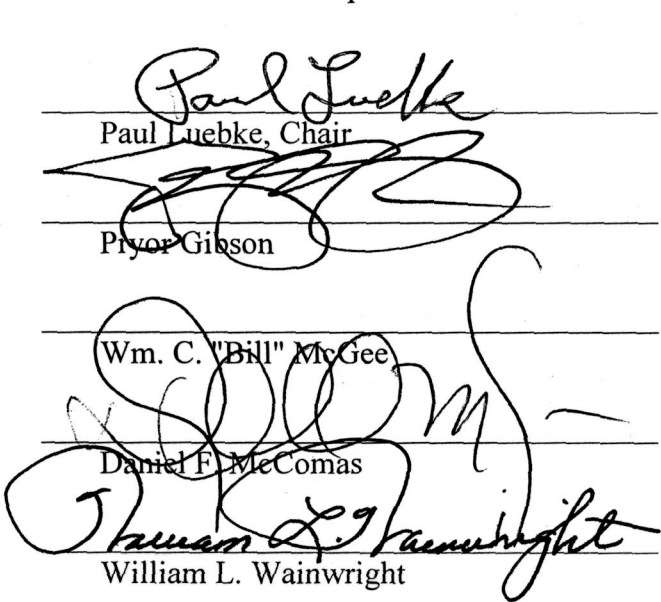 Paul Luebke
Paul Luebke, Chair
Pryor Gibson
Wm. C. "Bill" McGee
Daniel F. McComas
William L. Wainwright
William L. Wainwright